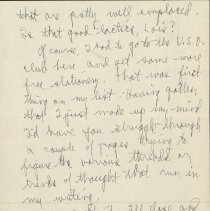 that are pretty well employed.
Is that good tactics, Lois?
Of course, I had to go to the U.S.O.
club here and get some more
free stationery. That was first
thing on my list. Having gotten
that I just made up my mind
I'd have you struggle through
a couple of pages trying to
figure the various threads or
trends of thought that run in
my writing.